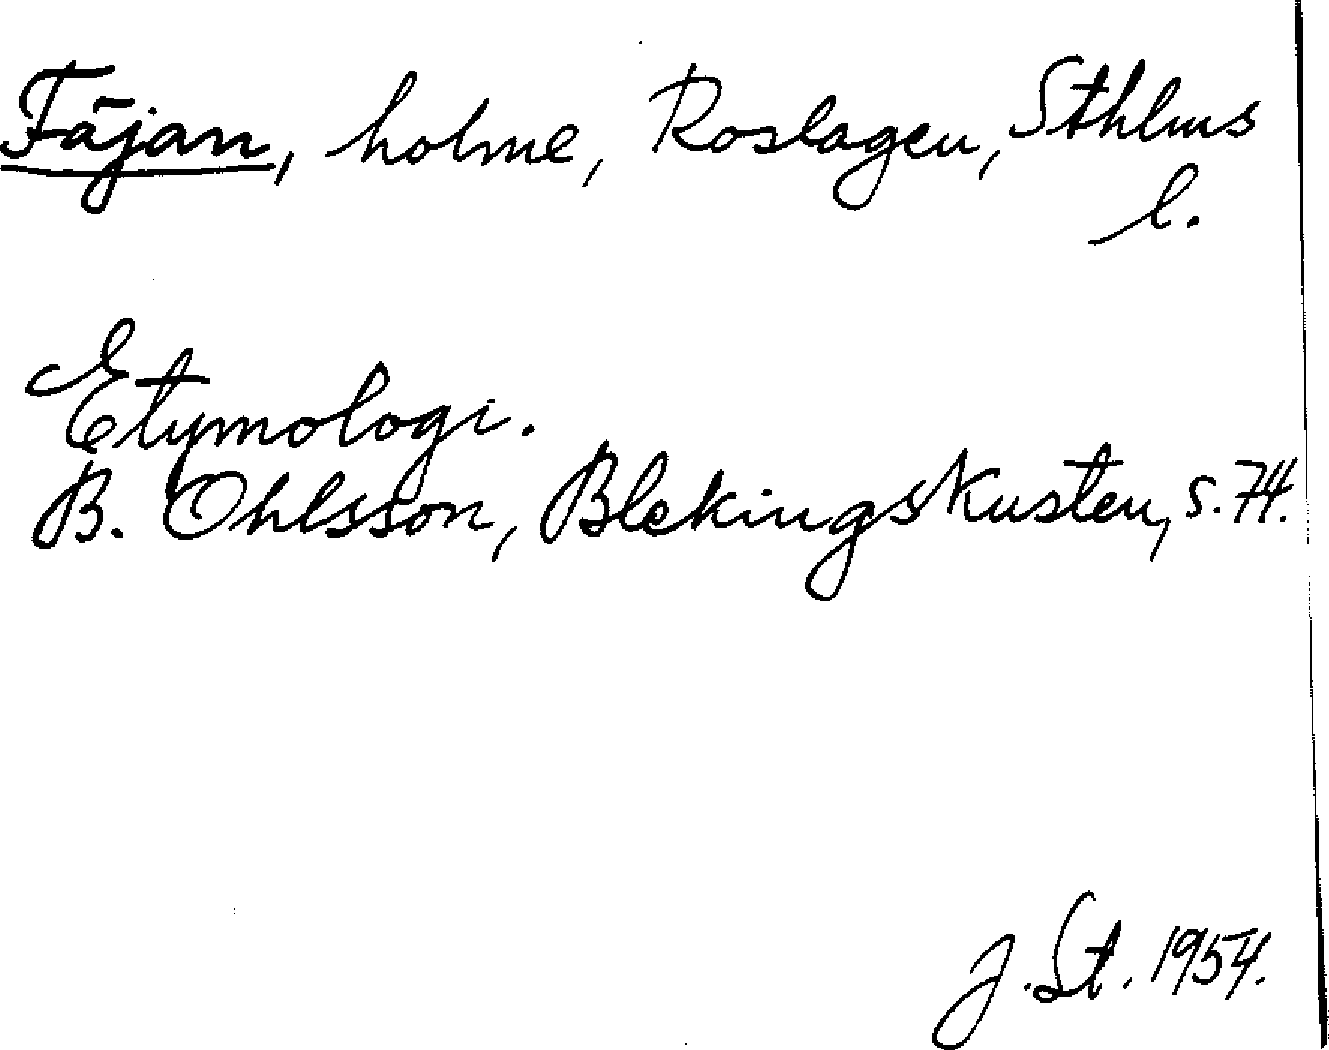 Fäjan, holme, Roslagen, Sthlms
l.
Etymologi.
B. Ohlsson, Blekingskusten, s. 74.
J. St. 1954.